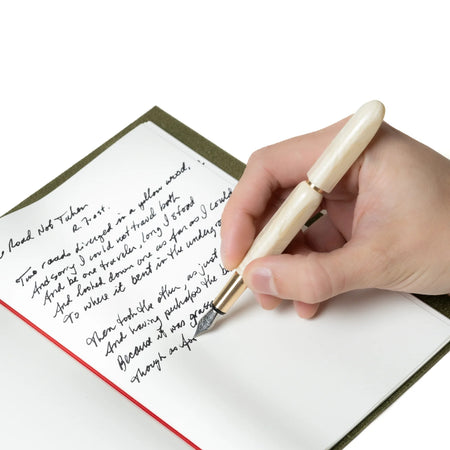 Road Not Taken
R. Frost.
Two roads diverged in a yellow wood,
And sorry I could not travel both
And be one traveler, long I stood
And looked down one as far as I could
To where it bent in the undergro
Then took the other, as just
And having perhaps the
Because it was gras
Though as for